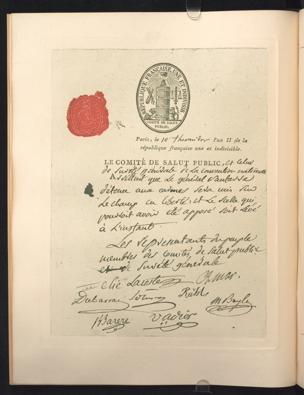 RÉPUBLIQUE FRANÇAISE UNE ET INDIVISIBLE
COMITÉ DE SALUT PUBLIC
Paris, le 10 Thermidor l'an II de la
république française une et indivisible.
LE COMITÉ DE SALUT PUBLIC, et celui
de Sureté générale de la convention nationale
arrêtent que le général
détenu aux carmes sera mis sur
le champ en liberté et le scellé qui
pourroit avoir été apposé sera levé
à l'instant
Les Représentants du peuple
membres des comités de salut public
et de Sureté générale
Elie Lacoste Amar
Dubarran Rühl M Bayle
B Barère Vadier